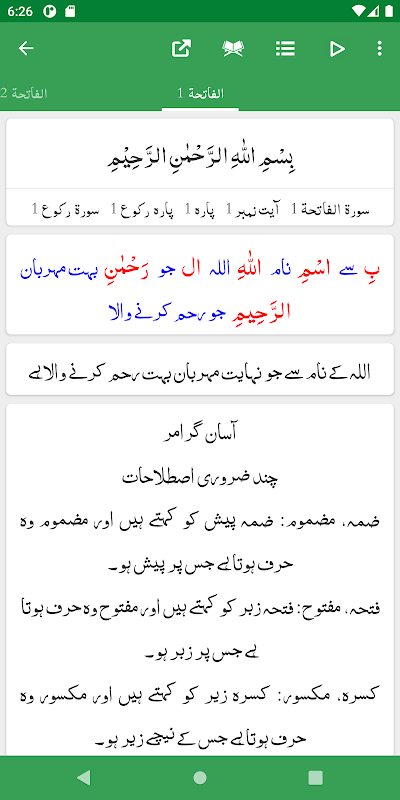 6:26
الفاتحة 1
الفاتحة 2
بِسْمِ اللّٰهِ الرَّحْمٰنِ الرَّحِيْمِ
سورة الفاتحة 1 آیت نمبر 1 پاره 1 پاره رکوع 1 سورة رکوع 1
بِ سے اسْمِ نام اللّٰهِ اللہ ال جو رَحْمٰنِ بہت مہربان
الرَّحِيمِ جو رحم کرنے والا
اللہ کے نام سے جو نہایت مہربان بہت رحم کرنے والا ہے
آسان گرامر
چند ضروری اصطلاحات
ضمہ، مضموم: ضمہ پیش کو کہتے ہیں اور مضموم وہ
حرف ہوتا ہے جس پر پیش ہو۔
فتحہ، مفتوح: فتحہ زبر کو کہتے ہیں اور مفتوح وہ حرف ہوتا
ہے جس پر زبر ہو۔
کسرہ، مکسور: کسرہ زیر کو کہتے ہیں اور مکسور وہ
حرف ہوتا ہے جس کے نیچے زیر ہو۔